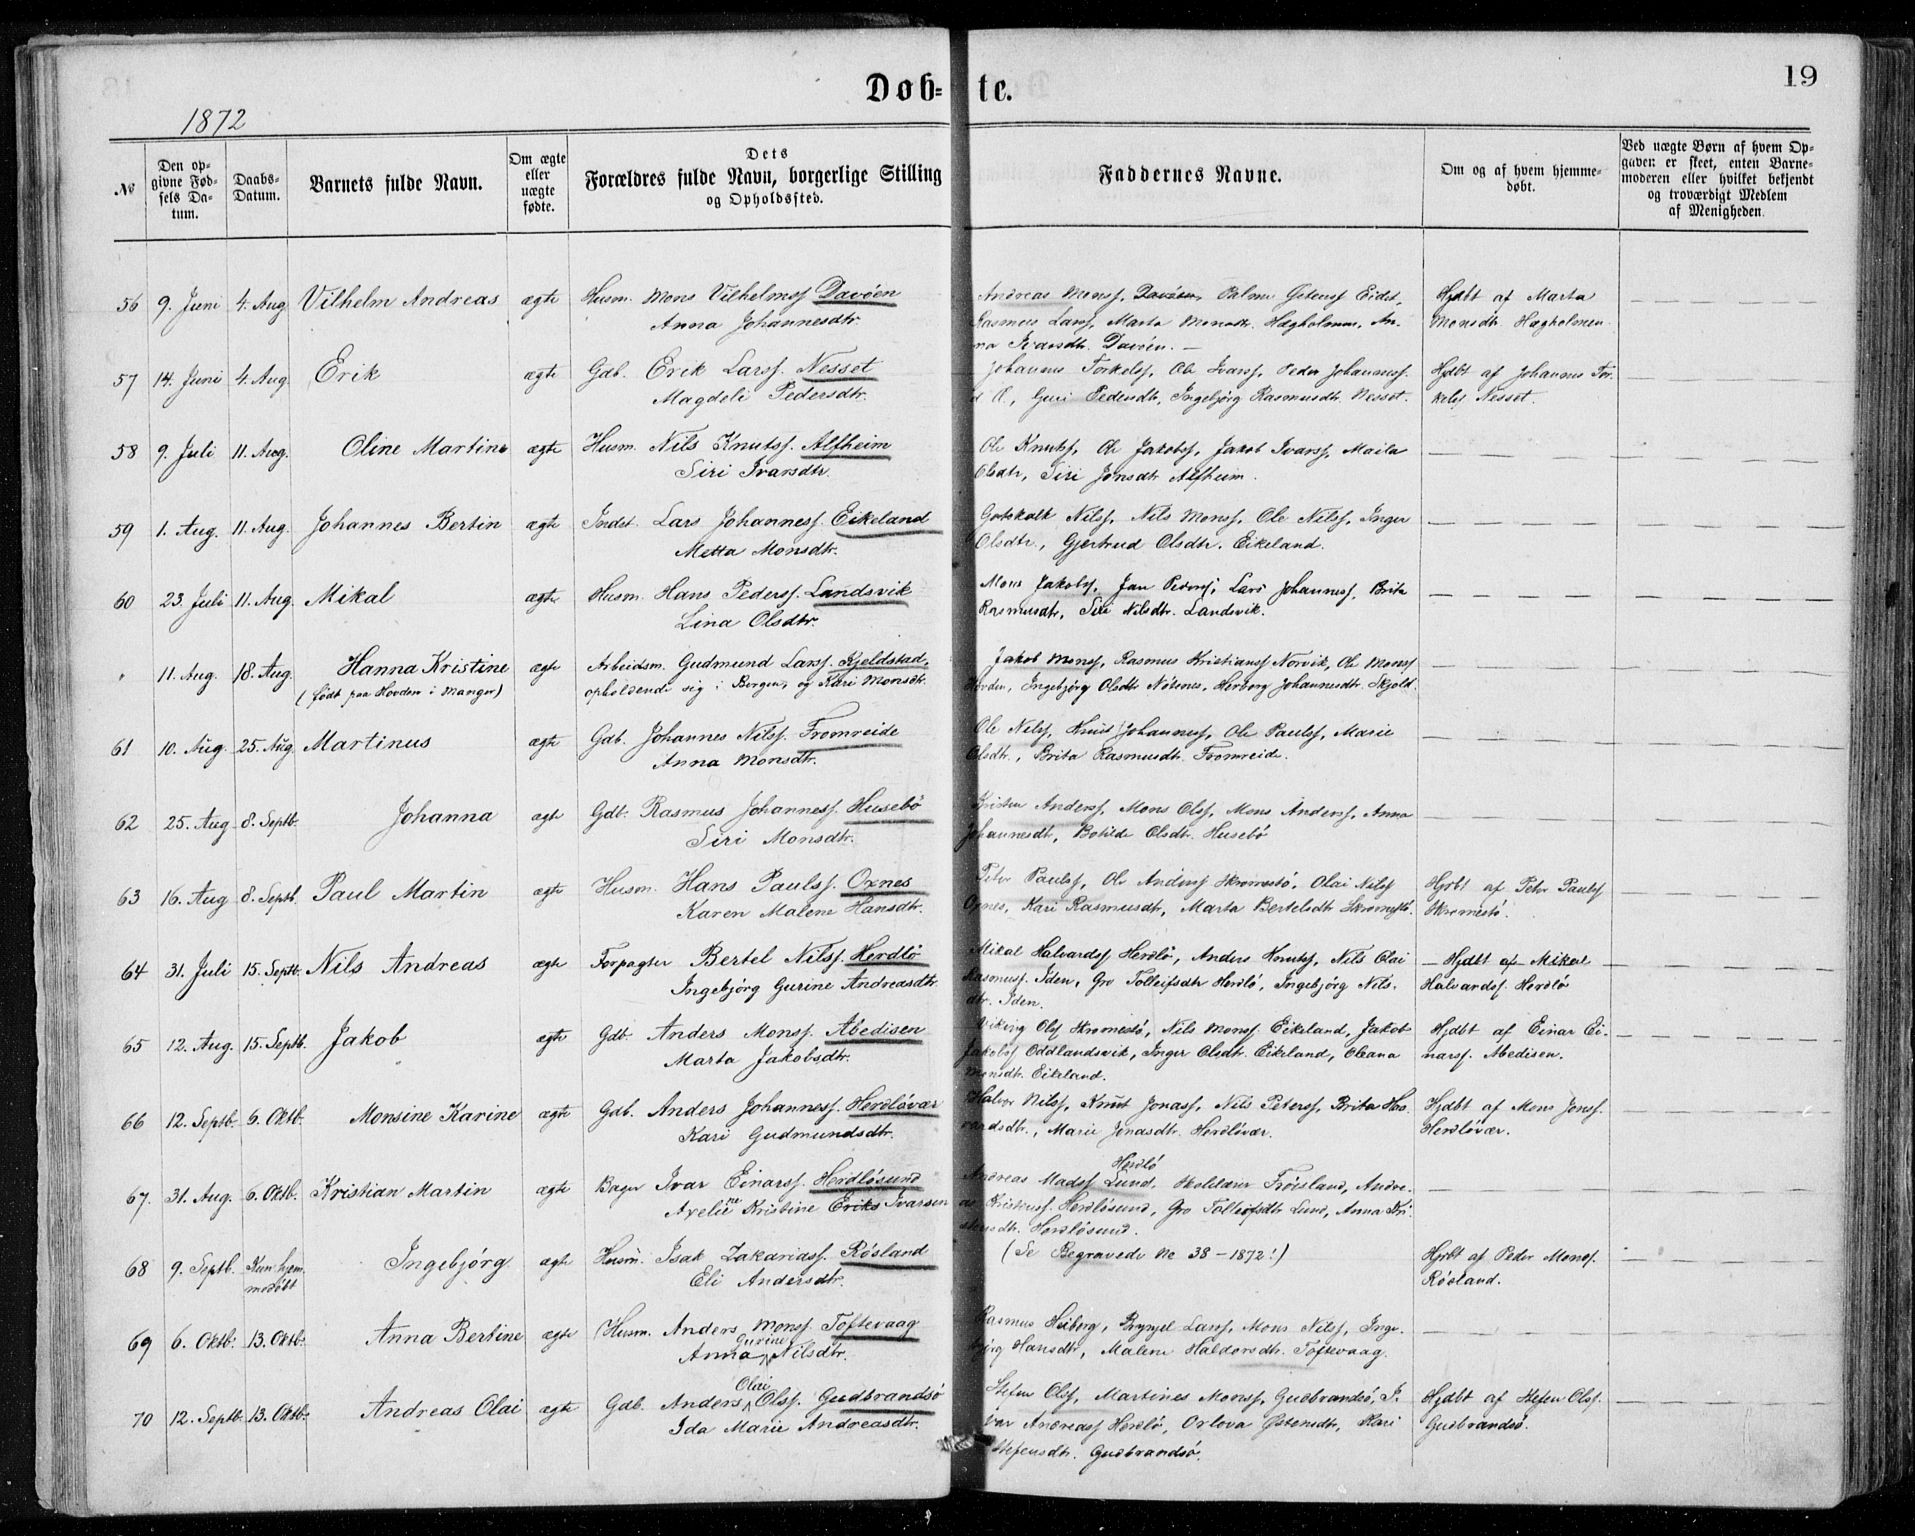 Døb-te.
19
1872
№
Den op-
givne Fød-
sels Da-
tum.
Daabs-
Datum.
Barnets fulde Navn.
Om ægte
eller
uægte
fødte.
Dets
Forældres fulde Navn, borgerlige Stilling
og Opholdssted.
Faddernes Navne.
Om og af hvem hjemme-
døbt.
Ved uægte Børn af hvem Op-
gaven er skeet, enten Barne-
moderen eller hvilket bekjendt
og troværdigt Medlem
af Menigheden.
56 9. Juni 4. Aug. Vilhelm Andreas ægte Husm. Mons Vilhelmss. Davöen
Anna Johannesdtr.
Andreas Monss. Davöen, Eidet,
Rasmus Larss, Marta Monsdtr. Hægholmen, An-
na Ivarsdtr. Davöen. —
Hjdbt af Marta
Monsdtr. Hægholmen.
57 14. Juni 4. Aug. Erik ægte Gdb. Erik Larss. Nesset
Magdeli Pedersdtr.
Johannes Torkelss, Ole Ivarss, Peder Johanness.
Guri Pedersdtr, Ingebjörg Rasmusdtr. Nesset.
Hjdbt af Johannes Tor-
kelss. Nesset.
58 9. Juli 11. Aug. Oline Martine ægte Husm. Nils Knutss. Alfheim
Siri Ivarsdtr.
Ole Knutss, Ole Jakobss, Jakob Ivarss, Maila
Olsdtr, Siri Jonsdtr Alfheim.
59 1. Aug. 11. Aug. Johannes Bertin ægte Inds. Lars Johanness. Eikeland
Metta Monsdtr.
Gotskalk Nilss, Nils Monss, Ole Nilss, Inger
Olsdtr, Gjertrud Olsdtr. Eikeland.
60 23. Juli 11. Aug. Mikal ægte Husm. Hans Pederss. Landsvik
Lina Olsdtr.
Mons Jakobss, Jan Pederss, Lars Johanness, Brita
Rasmusdtr, Siri Nilsdtr. Landsvik.
" 11. Aug. 18. Aug. Hanna Kristine ægte Arbeidsm. Gudmund Larss. Kjeldstad,
(født paa Hovden i Manger) opholdende sig i Bergen, og Kari Monsdtr.
Jakob Monss, Rasmus Kristianss Norvik, Ole Monss
Hovden, Ingebjörg Olsdtr Nötenes, Herborg Johannesdtr. Skjold.
61 10. Aug. 25. Aug. Martinus ægte Gdb. Johannes Nilss. Fromreide
Anna Monsdtr.
Ole Nilss, Knut Johanness, Ole Paulss, Marie
Olsdtr., Brita Rasmusdtr. Fromreide.
62 25. Aug 8. Septb. Johanna ægt Gdb. Rasmus Johanness. Husebö
Siri Monsdtr.
Kristen Anderss, Mons Olss, Mons Anderss, Anna
Johannesdtr, Botilde Olsdtr. Husebö
63 16. Aug 8. Septb. Paul Martin ægte Husm. Hans Paulss. Oxnes
Karen Malene Hansdtr.
Peter Paulss, Ole Anderss Skromestö, Olai Nilss
Oxnes, Kari Rasmusdtr, Marta Bertelsdtr Skromestö.
Hjdbt af Peter Paulss
Skromestö.
64 31. Juli 15. Septb. Nils Andreas ægte Forpagter Bertel Nilss. Herdlö
Ingebjörg Gurine Andreasdtr.
Mikal Halvardss Herdlö, Anders Knutss, Nils Olai
Rasmuss. Iden, Gro Tolleifsdtr Herdlö, Ingebjörg Nils-
dtr. Iden.
— Hjdbt af Mikal
Halvardss. Herdlö
65 12. Aug. 15. Septb. Jakob ægte Gdb. Anders Monss. Abedisen
Marta Jakobsdtr.
Viking Olss Skromestö, Nils Monss. Eikeland, Jakob
Jakobss Oddlandsvik, Inger Olsdtr. Eikeland, Oleana
Monsdtr. Eikeland.
Hjdbt af Einar Ei-
narss. Abedisen.
66 12. Septb. 6. Oktb. Monsine Karine ægte Gdb. Anders Johanness. Herdlövær
Kari Gudmundsdtr.
Halvor Nilss, Knut Jonass, Nils Peterss, Brita Ha-
vardsdtr., Marie Jonasdtr. Herdlövær.
Hjdbt af Mons Jonss.
Herdlövær.
67. 31. Aug. 6. Oktb. Kristian Martin ægte Bager Ivar Einarss. Herdlösund
Axeline Kristine Eriks Ivarsen
Herdlö
Andreas Madss Lund. Skolelærer Fröisland, Andre-
as Kristenss. Herdlösund, Gro Tolleifsdtr Lund, Anna Kri-
stensdtr. Herdlösund.
68 9. Septb. Kun hjem-
medöbt Ingebjörg ægte Husm. Isak Zakariass. Rösland
Eli Andersdtr.
(Se Begravede No 38 - 1872!)
Hjdbt af Peder Monss.
Rösland.
69 6. Oktb. 13. Oktb. Anna Bertine ægte Husm. Anders Monss. Toftevaag
Gurine
Anna Nilsdtr.
Rasmus Heiberg, Brynjel Larss, Mons Nilss, Inge-
björg Hansdtr, Malene Haldorsdtr. Toftevaag.
70 12. Septb. 13. Oktb. Andreas Olai ægte Gdb. Anders Olai Olss. Gudbrandsö
Ida Marie Andreasdtr.
Stefen Olss, Martines Monss, Gudbrandsö, I-
var Andreass Herdlö, Orlova Østensdtr, Kari
Stefensdtr. Gudbrandsö.
Hjdbt af Stefen Olss.
Gudbrandsö.